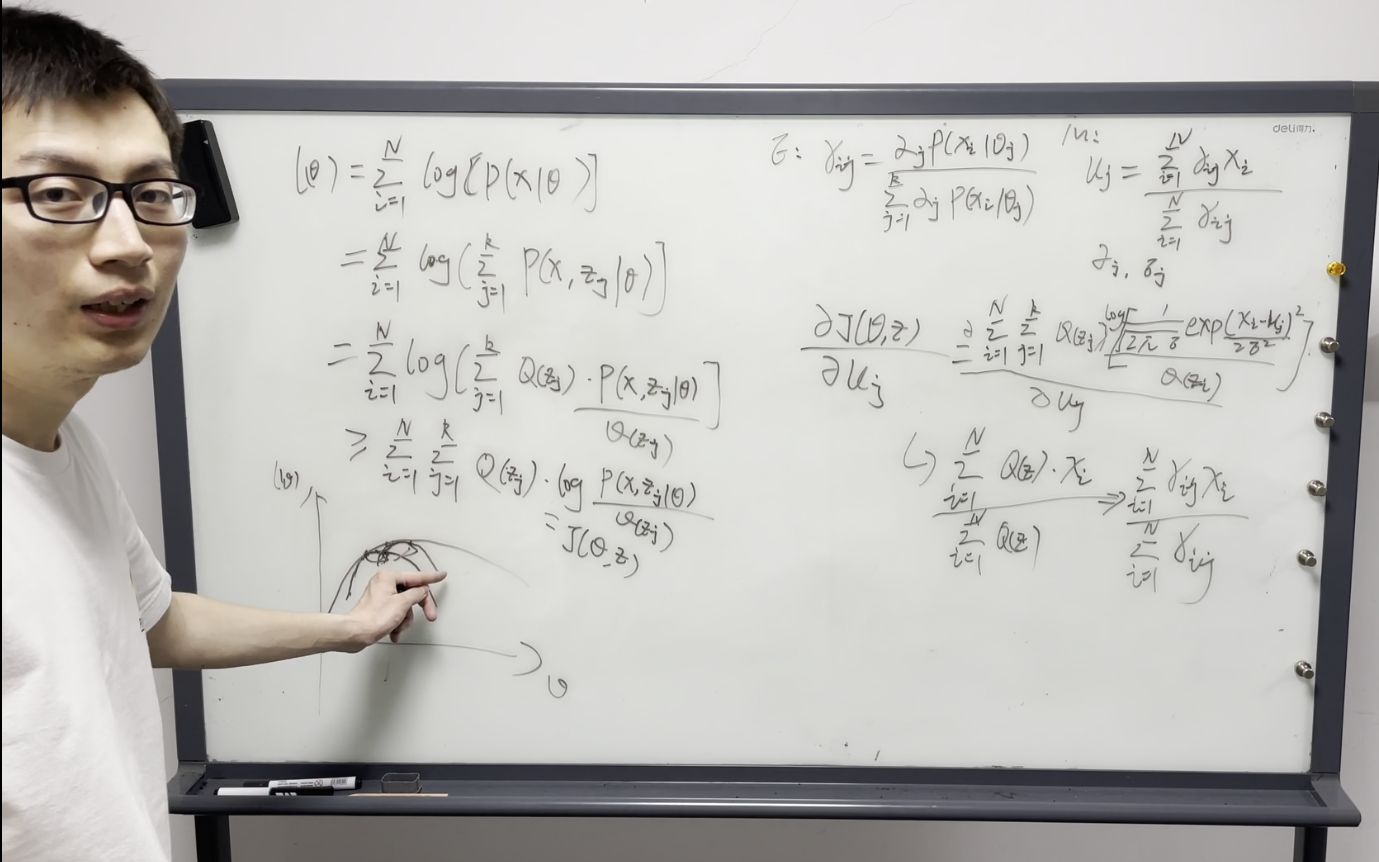 l(θ) = Σ_{i=1}^{N} log[P(x|θ)]
= Σ_{i=1}^{N} log(Σ_{j=1}^{k} P(x,z_j|θ)]
= Σ_{i=1}^{N} log(Σ_{j=1}^{k} Q(z_j) · P(x,z_j|θ) / Q(z_j)]
≥ Σ_{i=1}^{N} Σ_{j=1}^{k} Q(z_j) · log P(x,z_j|θ) / Q(z_j)
= J(θ,z)
l(θ)
θ
E: γ_{ij} = α_j P(x_i|θ_j) / Σ_{j=1}^{k} α_j P(x_i|θ_j)
M: μ_j = Σ_{i=1}^{N} γ_{ij} x_i / Σ_{i=1}^{N} γ_{ij}
α_j, σ_j
∂J(θ,z) / ∂μ_j = ∂ Σ_{i=1}^{N} Σ_{j=1}^{k} Q(z_j) log[ 1/√(2π σ) exp (x_i-μ_j)^2 / 2σ^2 / Q(z_i) ] / ∂μ_j
↳ Σ_{i=1}^{N} Q(z) · x_i / Σ_{i=1}^{N} Q(z) ⇒ Σ_{i=1}^{N} γ_{ij} x_i / Σ_{i=1}^{N} γ_{ij}
deli得力